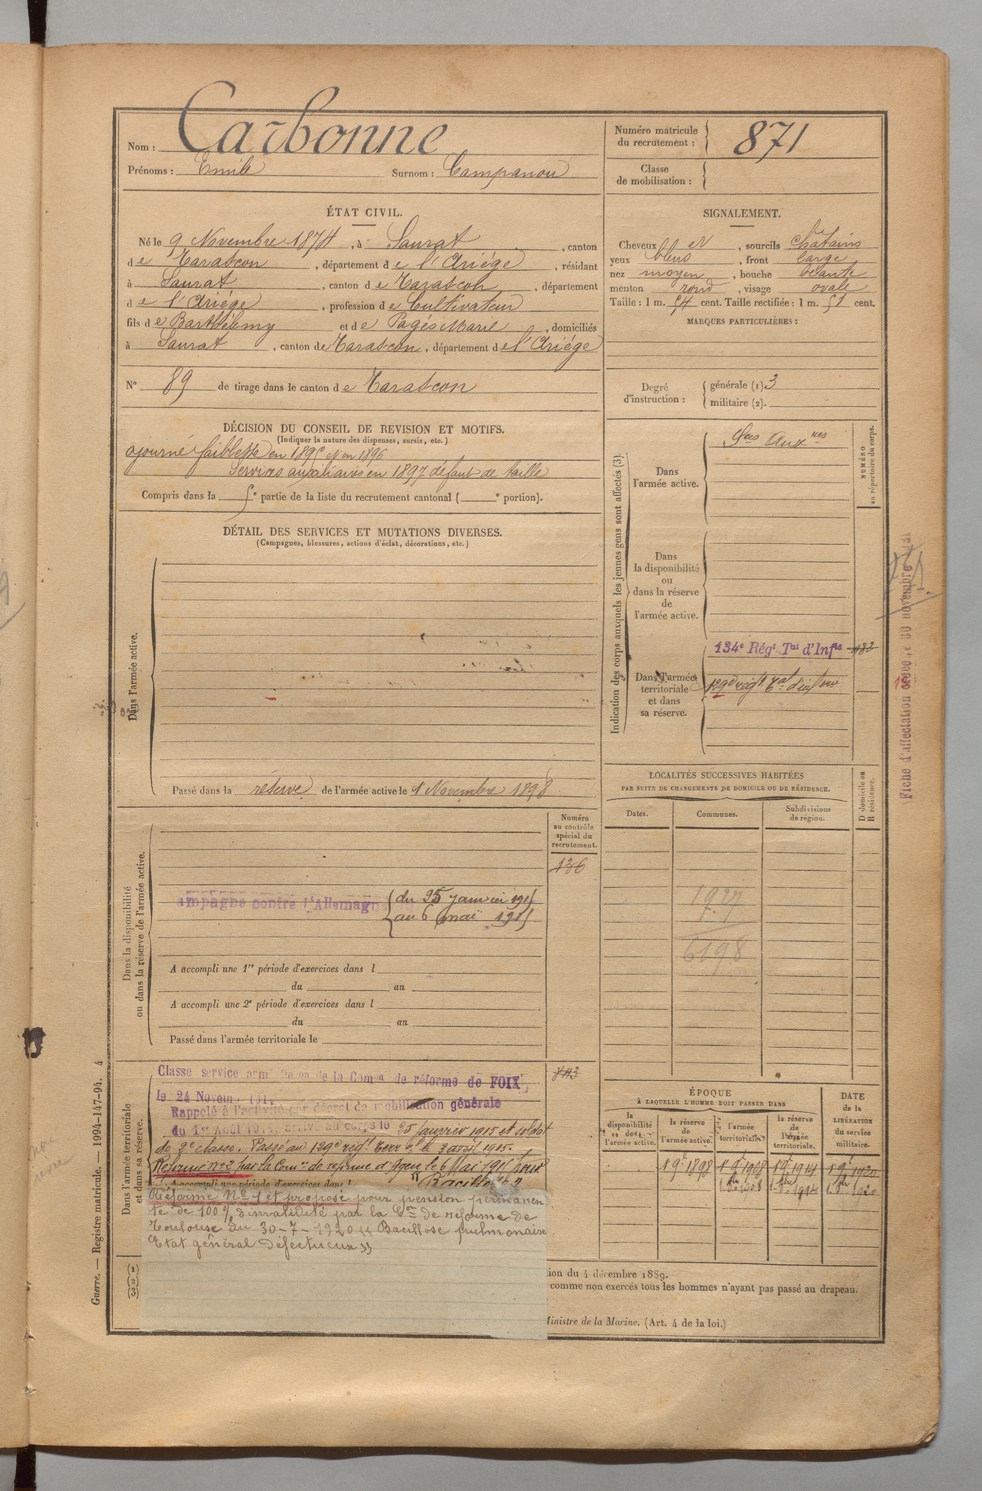 Nom : Carbonne
Prénoms : Emile Surnom : Campanou
Numéro matricule du recrutement : 871
Classe de mobilisation :
ÉTAT CIVIL.
Né le 9 Novembre 1874, à Saurat, canton
de Tarascon, département de l'Ariège, résidant
à Saurat, canton de Tarascon, département
de l'Ariège, profession de Cultivateur
fils de Barthélemy et de Pagès Marie, domiciliés
à Saurat, canton de Tarascon, département de l'Ariège
N° 89 de tirage dans le canton de Tarascon
SIGNALEMENT.
Cheveux et, sourcils chatains
yeux bleus, front large
nez moyen, bouche béante
menton rond, visage ovale
Taille : 1 m. 54 cent. Taille rectifiée : 1 m. 51 cent.
MARQUES PARTICULIÈRES :
Degré d'instruction : générale (1) 3
militaire (2).
DÉCISION DU CONSEIL DE REVISION ET MOTIFS.
(Indiquer la nature des dispenses, sursis, etc.)
ajourné faiblesse en 1895 et en 1896
Services auxiliaires en 1897 défaut de taille
Compris dans la 5e partie de la liste du recrutement cantonal ( e portion).
DÉTAIL DES SERVICES ET MUTATIONS DIVERSES.
(Campagnes, blessures, actions d'éclat, décorations, etc.)
Dans l'armée active.
Passé dans la réserve de l'armée active le 1 Novembre 1898
Indication des corps auxquels les jeunes gens sont affectés (3).
NUMÉRO au répertoire du corps.
Dans l'armée active.
Sces Auxres
Dans la disponibilité ou dans la réserve de l'armée active.
Dans l'armée territoriale et dans sa réserve.
134e Régt Tal d'Infie
129e régt Tal d'infrie
Fiche d'affectation
30 novembre
LOCALITÉS SUCCESSIVES HABITÉES
PAR SUITE DE CHANGEMENTS DE DOMICILE OU DE RÉSIDENCE.
Dates. Communes. Subdivisions de région. D domicile ou R résidence.
1927
6198
Dans la disponibilité ou dans la réserve de l'armée active.
Numéro au contrôle spécial du recrutement.
136
ampagne contre l'Allemagn du 25 janvier 1915
au 6 mai 1915
A accompli une 1re période d'exercices dans l
du au
A accompli une 2e période d'exercices dans l
du au
Passé dans l'armée territoriale le
Dans l'armée territoriale et dans sa réserve.
Classe service armé de la Comon de réforme de FOIX
le 24 Novem 1914
Rappelé à l'activité par décret de mobilisation générale
du 1er Août 1914 arrivé au corps le 25 Janvier 1915 et soldat
de 2e classe. Passé au 129e régt Terr al le 3 avril 1915.
Réformé n°2 par la Comon de réforme d'Agen le 6 Mai 1915 pour
A accompli une période d'exercices dans l
Réforme N° 1 et proposé pour pension permanen
te de 100% d'invalidité par la Con de réforme de
Toulouse du 30-7-1920 « Bacillose pulmonaire
Etat général défectueux »
ÉPOQUE
À LAQUELLE L'HOMME DOIT PASSER DANS
la disponibilité de l'armée active. la réserve de l'armée active. l'armée territoriale. la réserve de l'armée territoriale.
DATE de la LIBÉRATION du service militaire.
(1)
(2)
(3)
tion du 4 décembre 1889.
comme non exercés tous les hommes n'ayant pas passé au drapeau.
Ministre de la Marine. (Art. 4 de la loi.)
Guerre. — Registre matricule. — 1994-147-94. 4